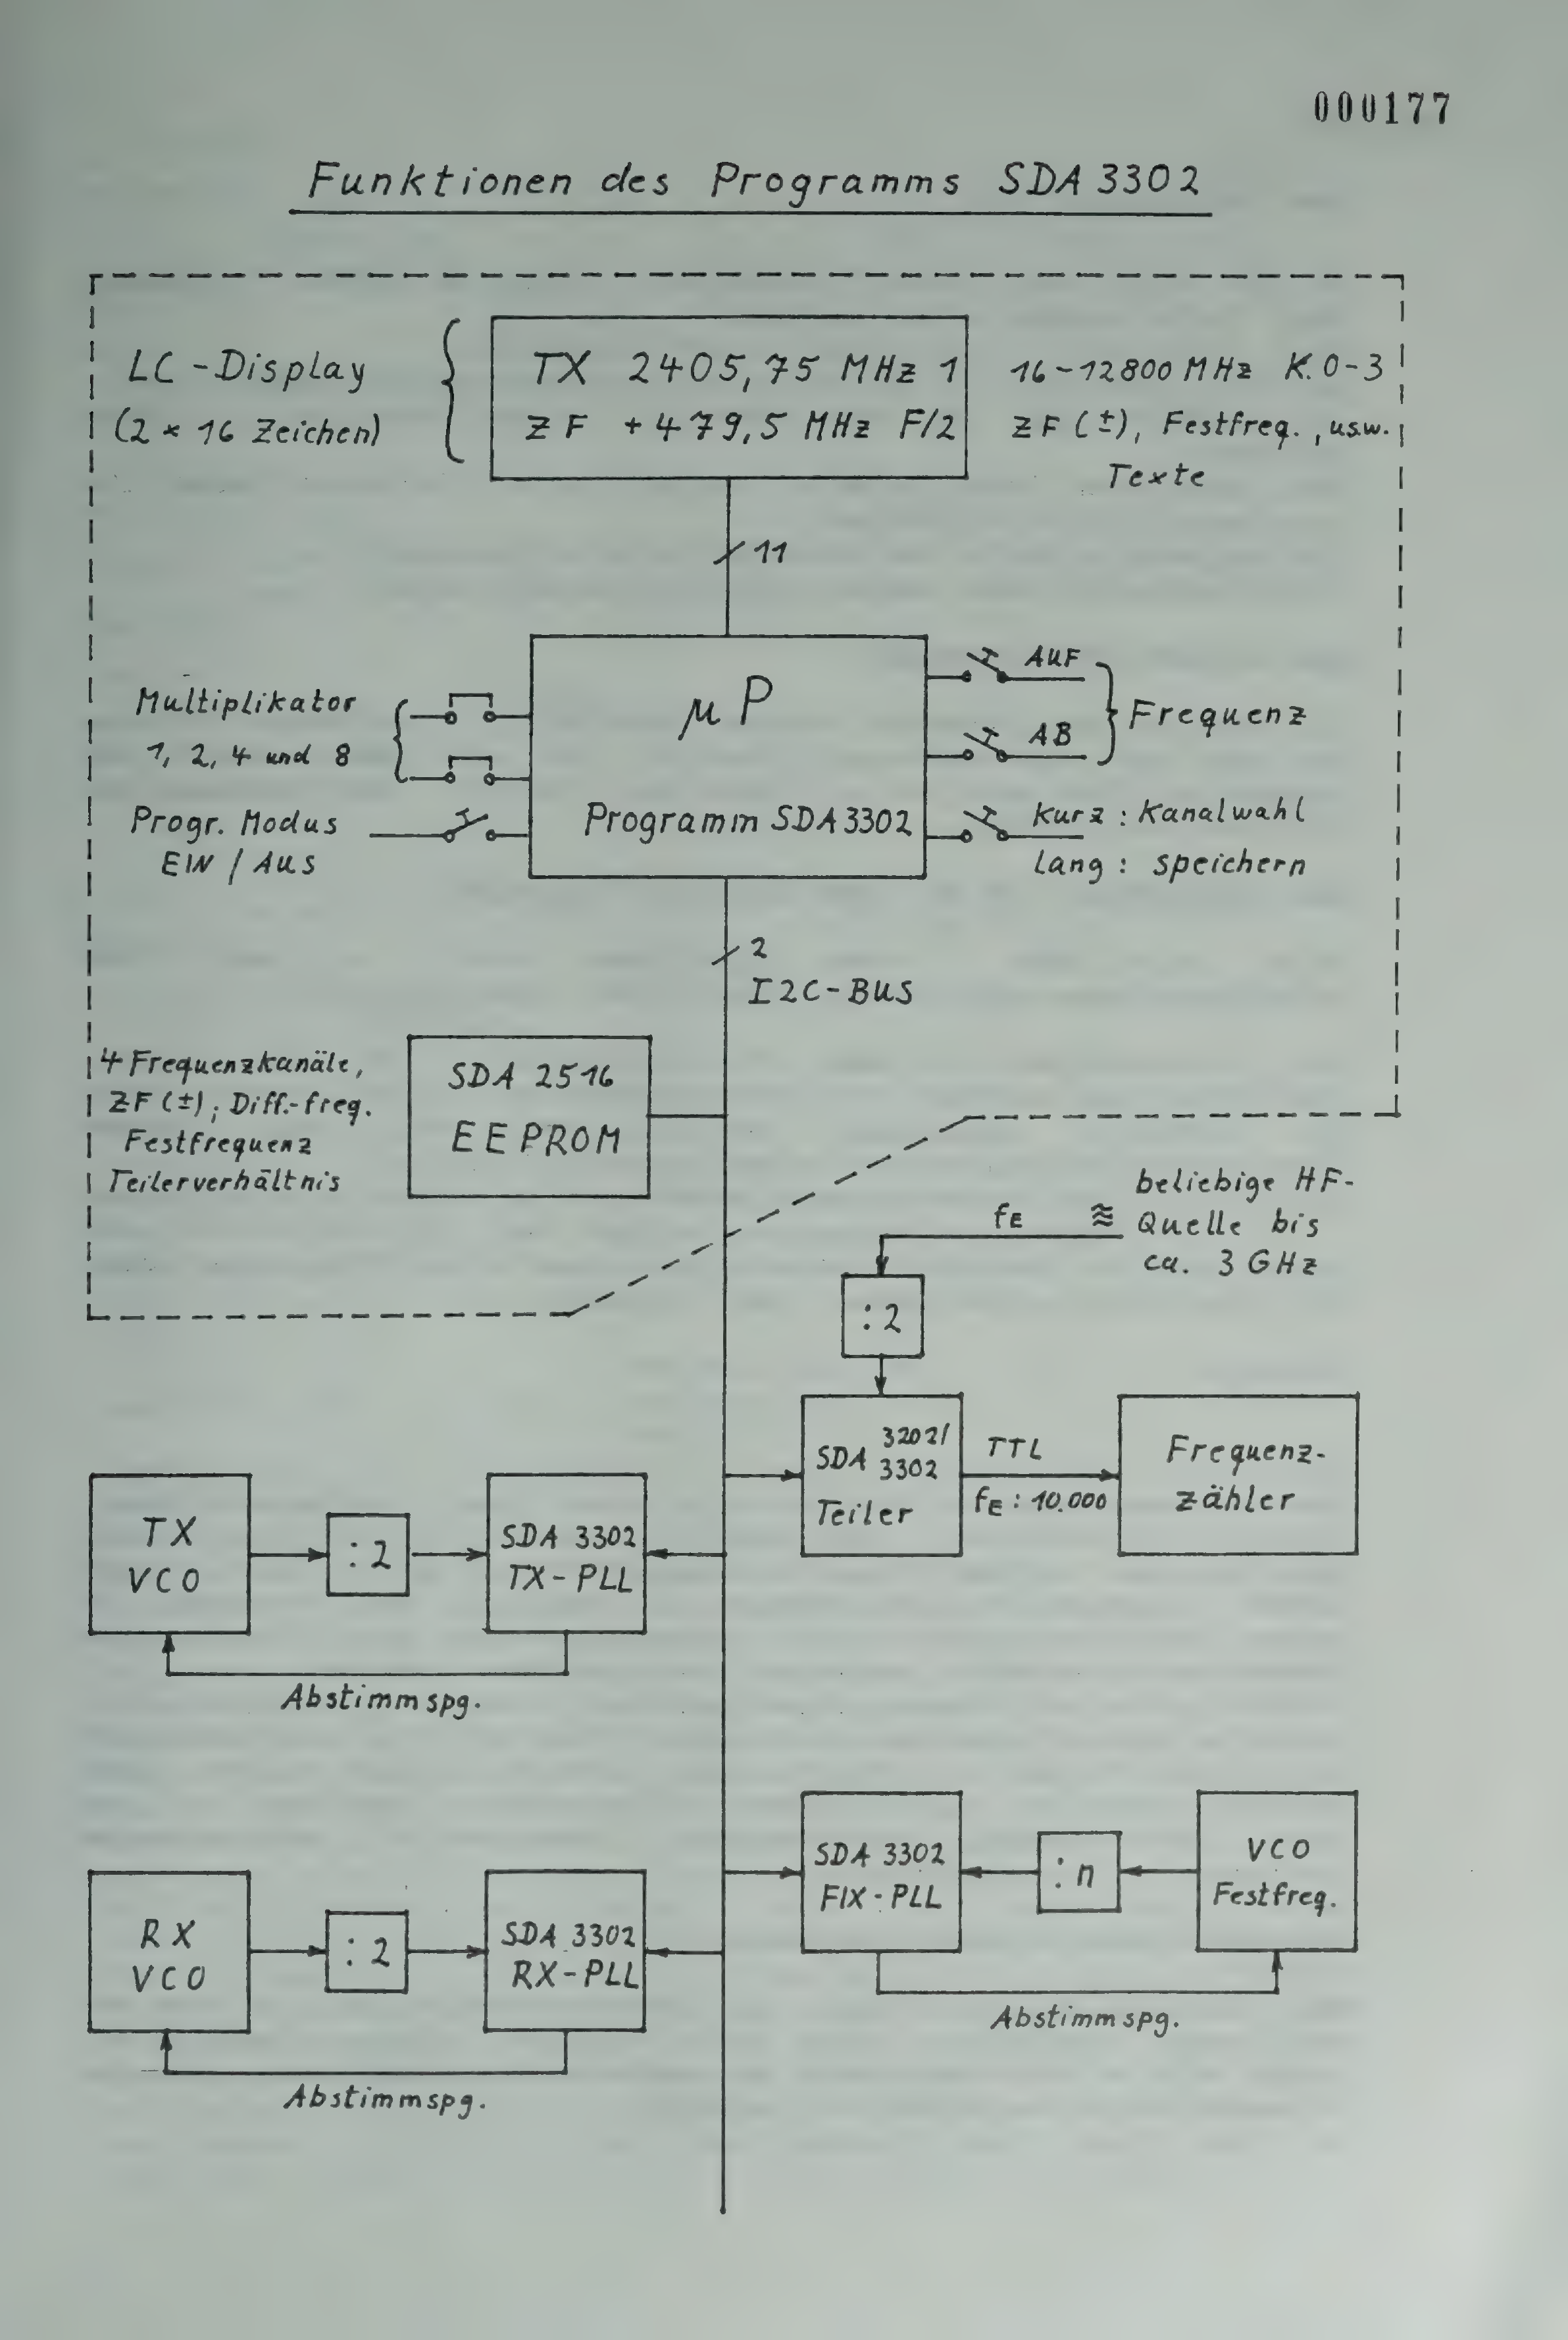 000177
Funktionen des Programms SDA 3302
LC-Display
(2 × 16 Zeichen)
TX 2405,75 MHz 1
ZF +479,5 MHz F/2
16-12800 MHz K. 0-3
ZF (±), Festfreq., usw.
Texte
11
Multiplikator
1, 2, 4 und 8
Progr. Modus
EIN / AUS
µP
Programm SDA3302
AUF
AB
Frequenz
kurz: Kanalwahl
lang: speichern
2
I2C-BUS
4 Frequenzkanäle,
ZF (±), Diff.-freq.
Festfrequenz
Teilerverhältnis
SDA 2516
EEPROM
beliebige HF-
Quelle bis
ca. 3 GHz
fE ≈
:2
SDA 3202/
3302
Teiler
TTL
fE : 10.000
Frequenz-
zähler
TX
VCO
:2
SDA 3302
TX-PLL
Abstimmspg.
SDA 3302
FIX-PLL
:n
VCO
Festfreq.
Abstimmspg.
RX
VCO
:2
SDA 3302
RX-PLL
Abstimmspg.